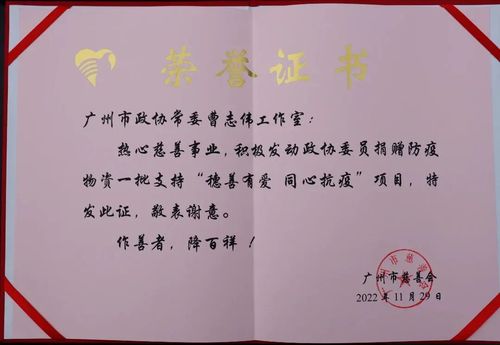 荣誉证书
广州市政协常委曹志伟工作室：
热心慈善事业，积极发动政协委员捐赠防疫
物资一批支持“穗善有爱 同心抗疫”项目，特
发此证，敬表谢意。
作善者，降百祥！
广州市慈善会
2022年11月29日